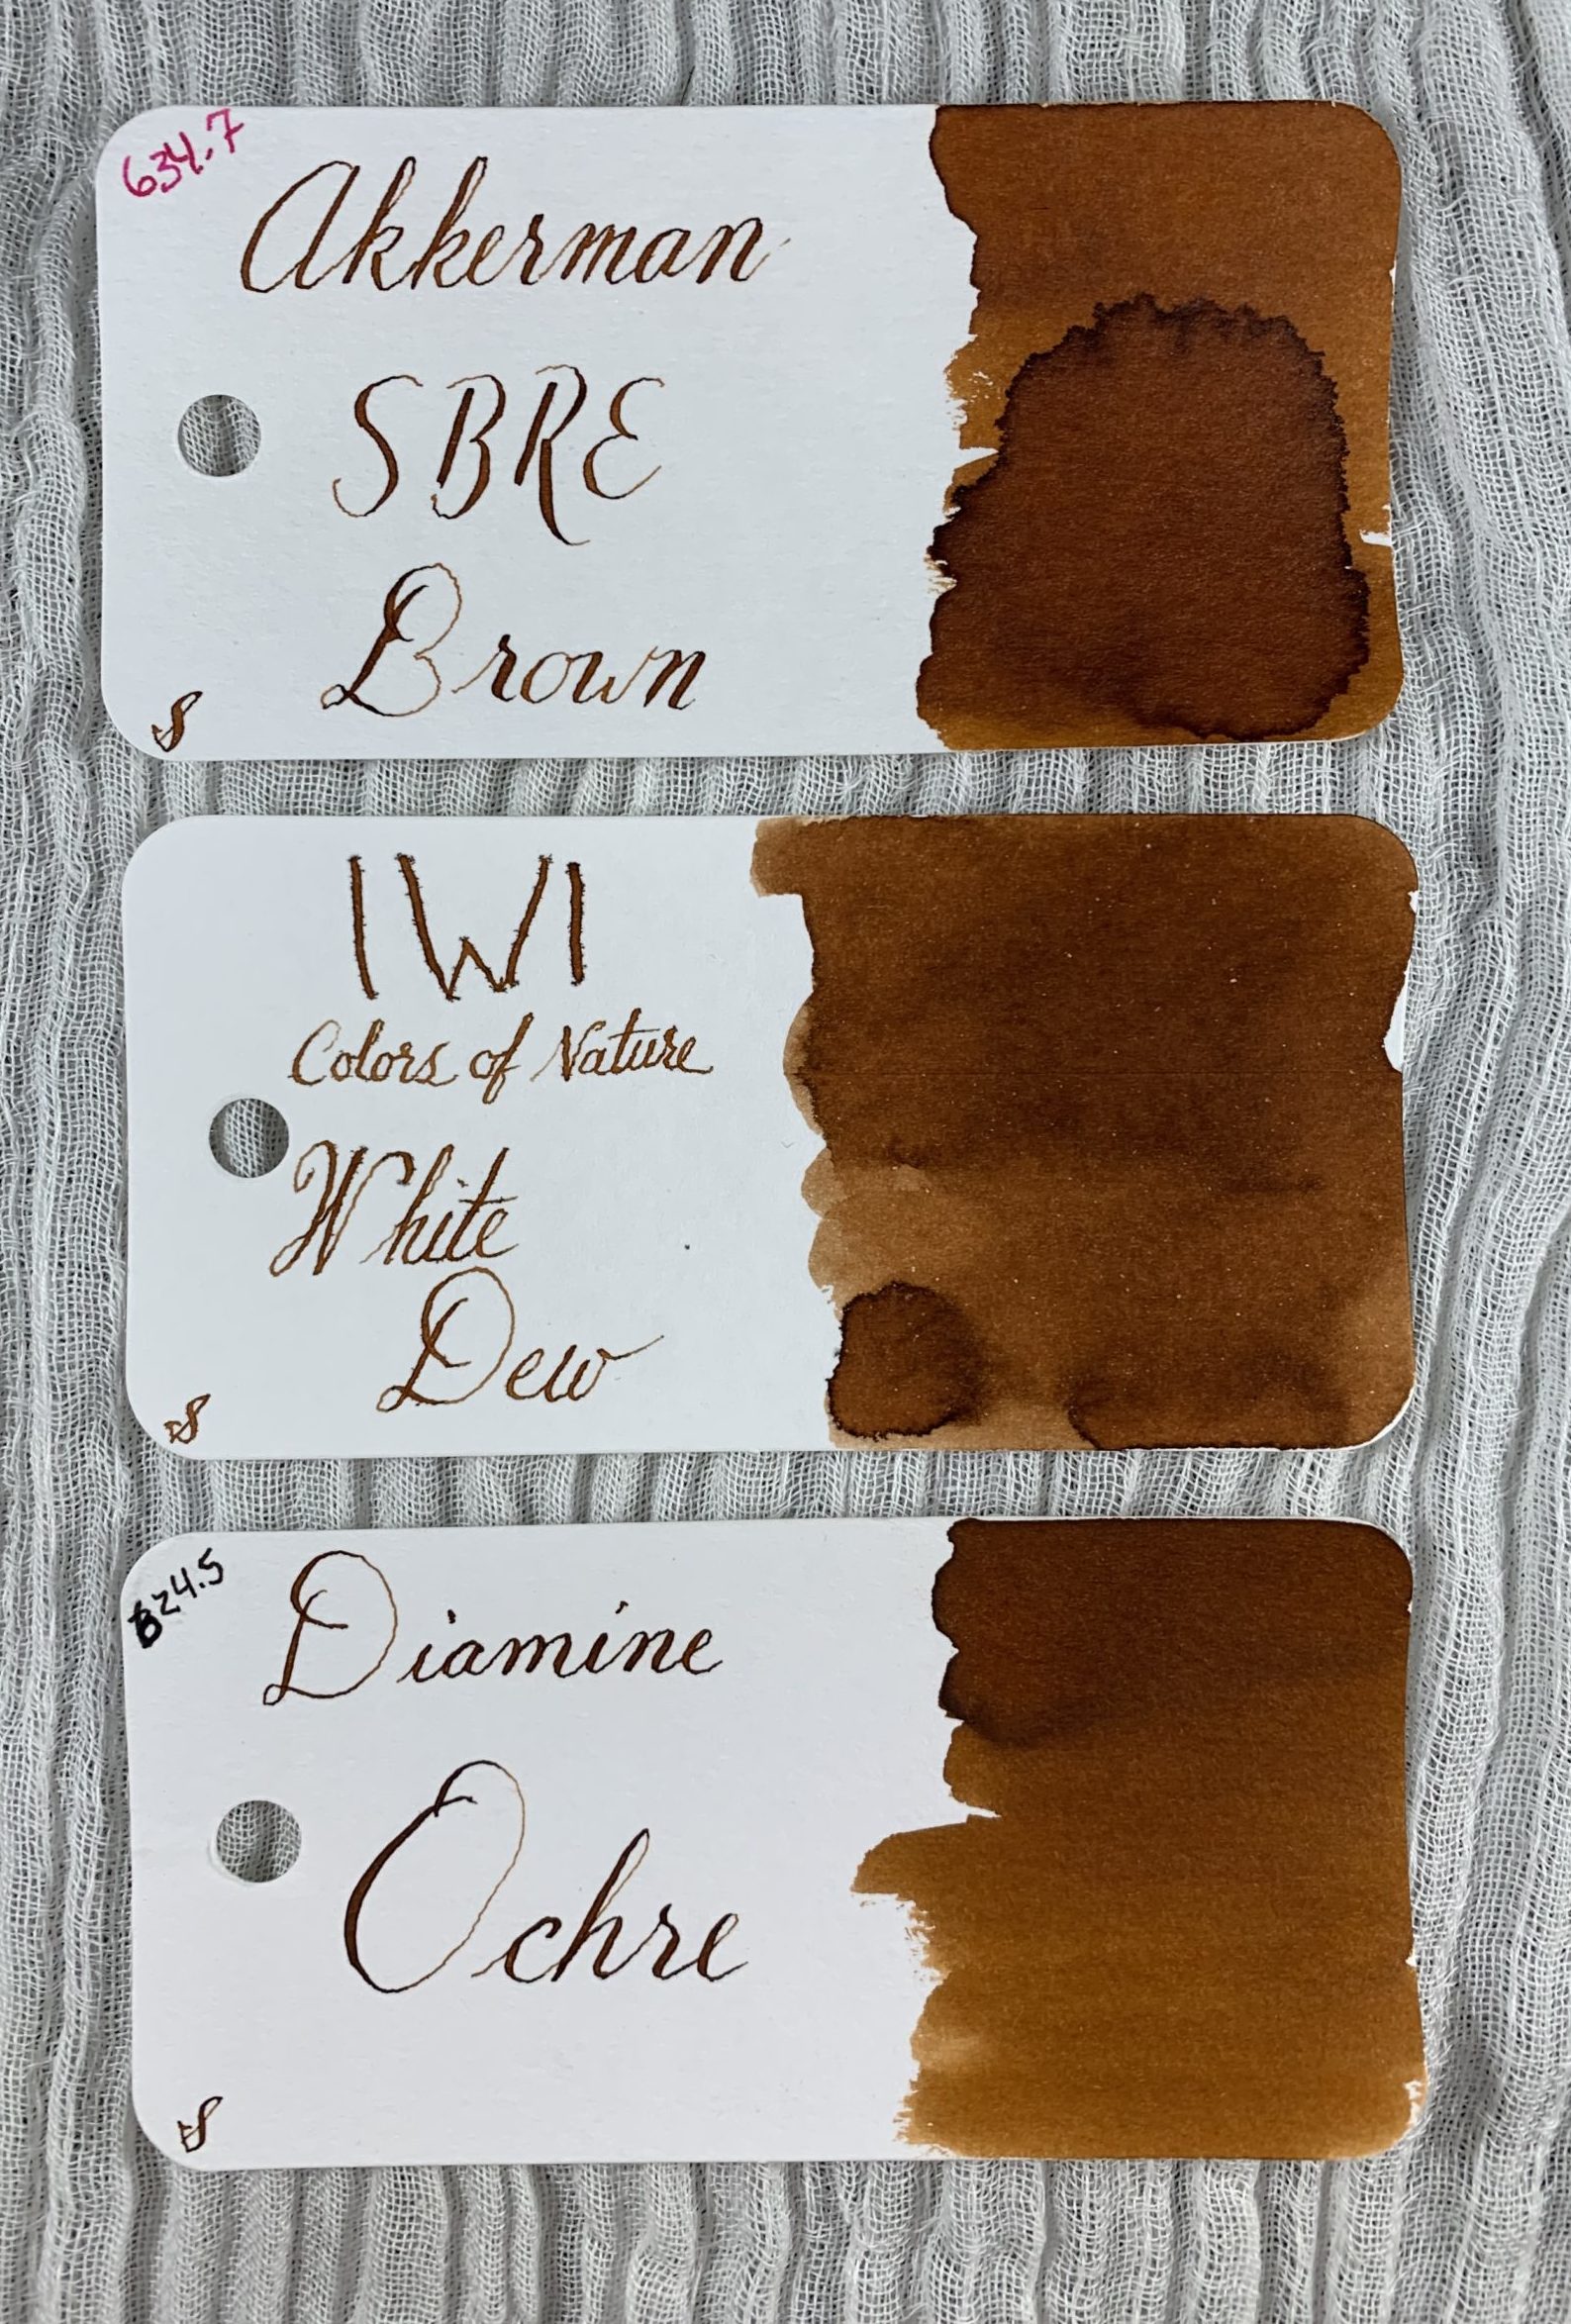 634.7
Akkerman
SBRE
Brown
S
IWI
Colors of Nature
White
Dew
S
824.5
Diamine
Ochre
S